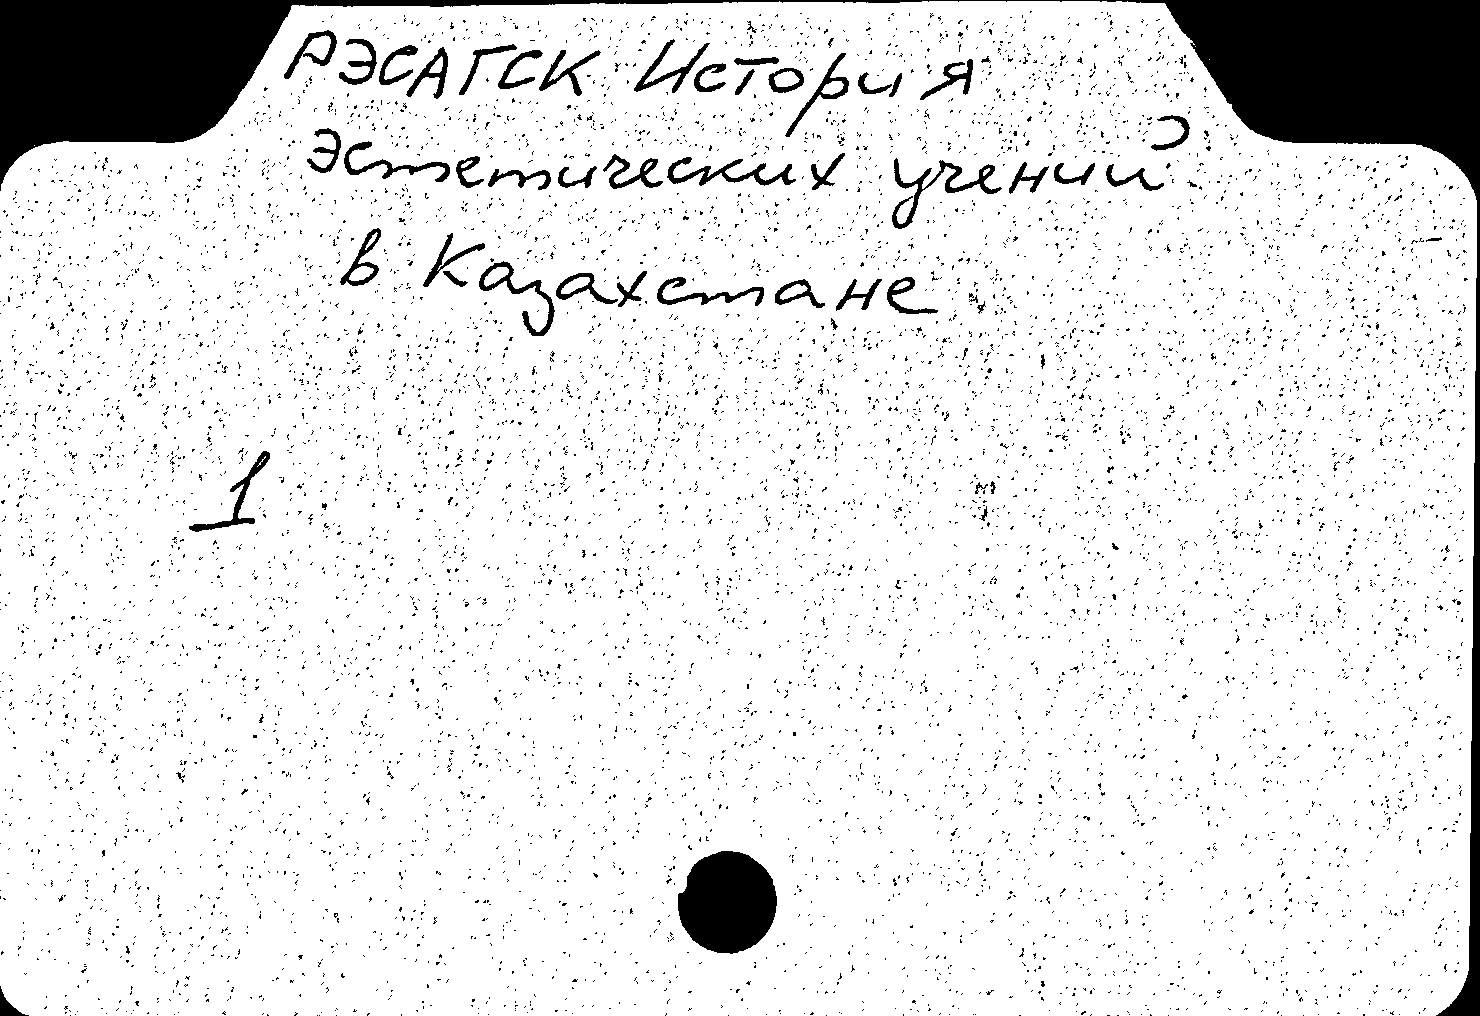 РЭСАГСК История
эстетических учений
в Казахстане
1